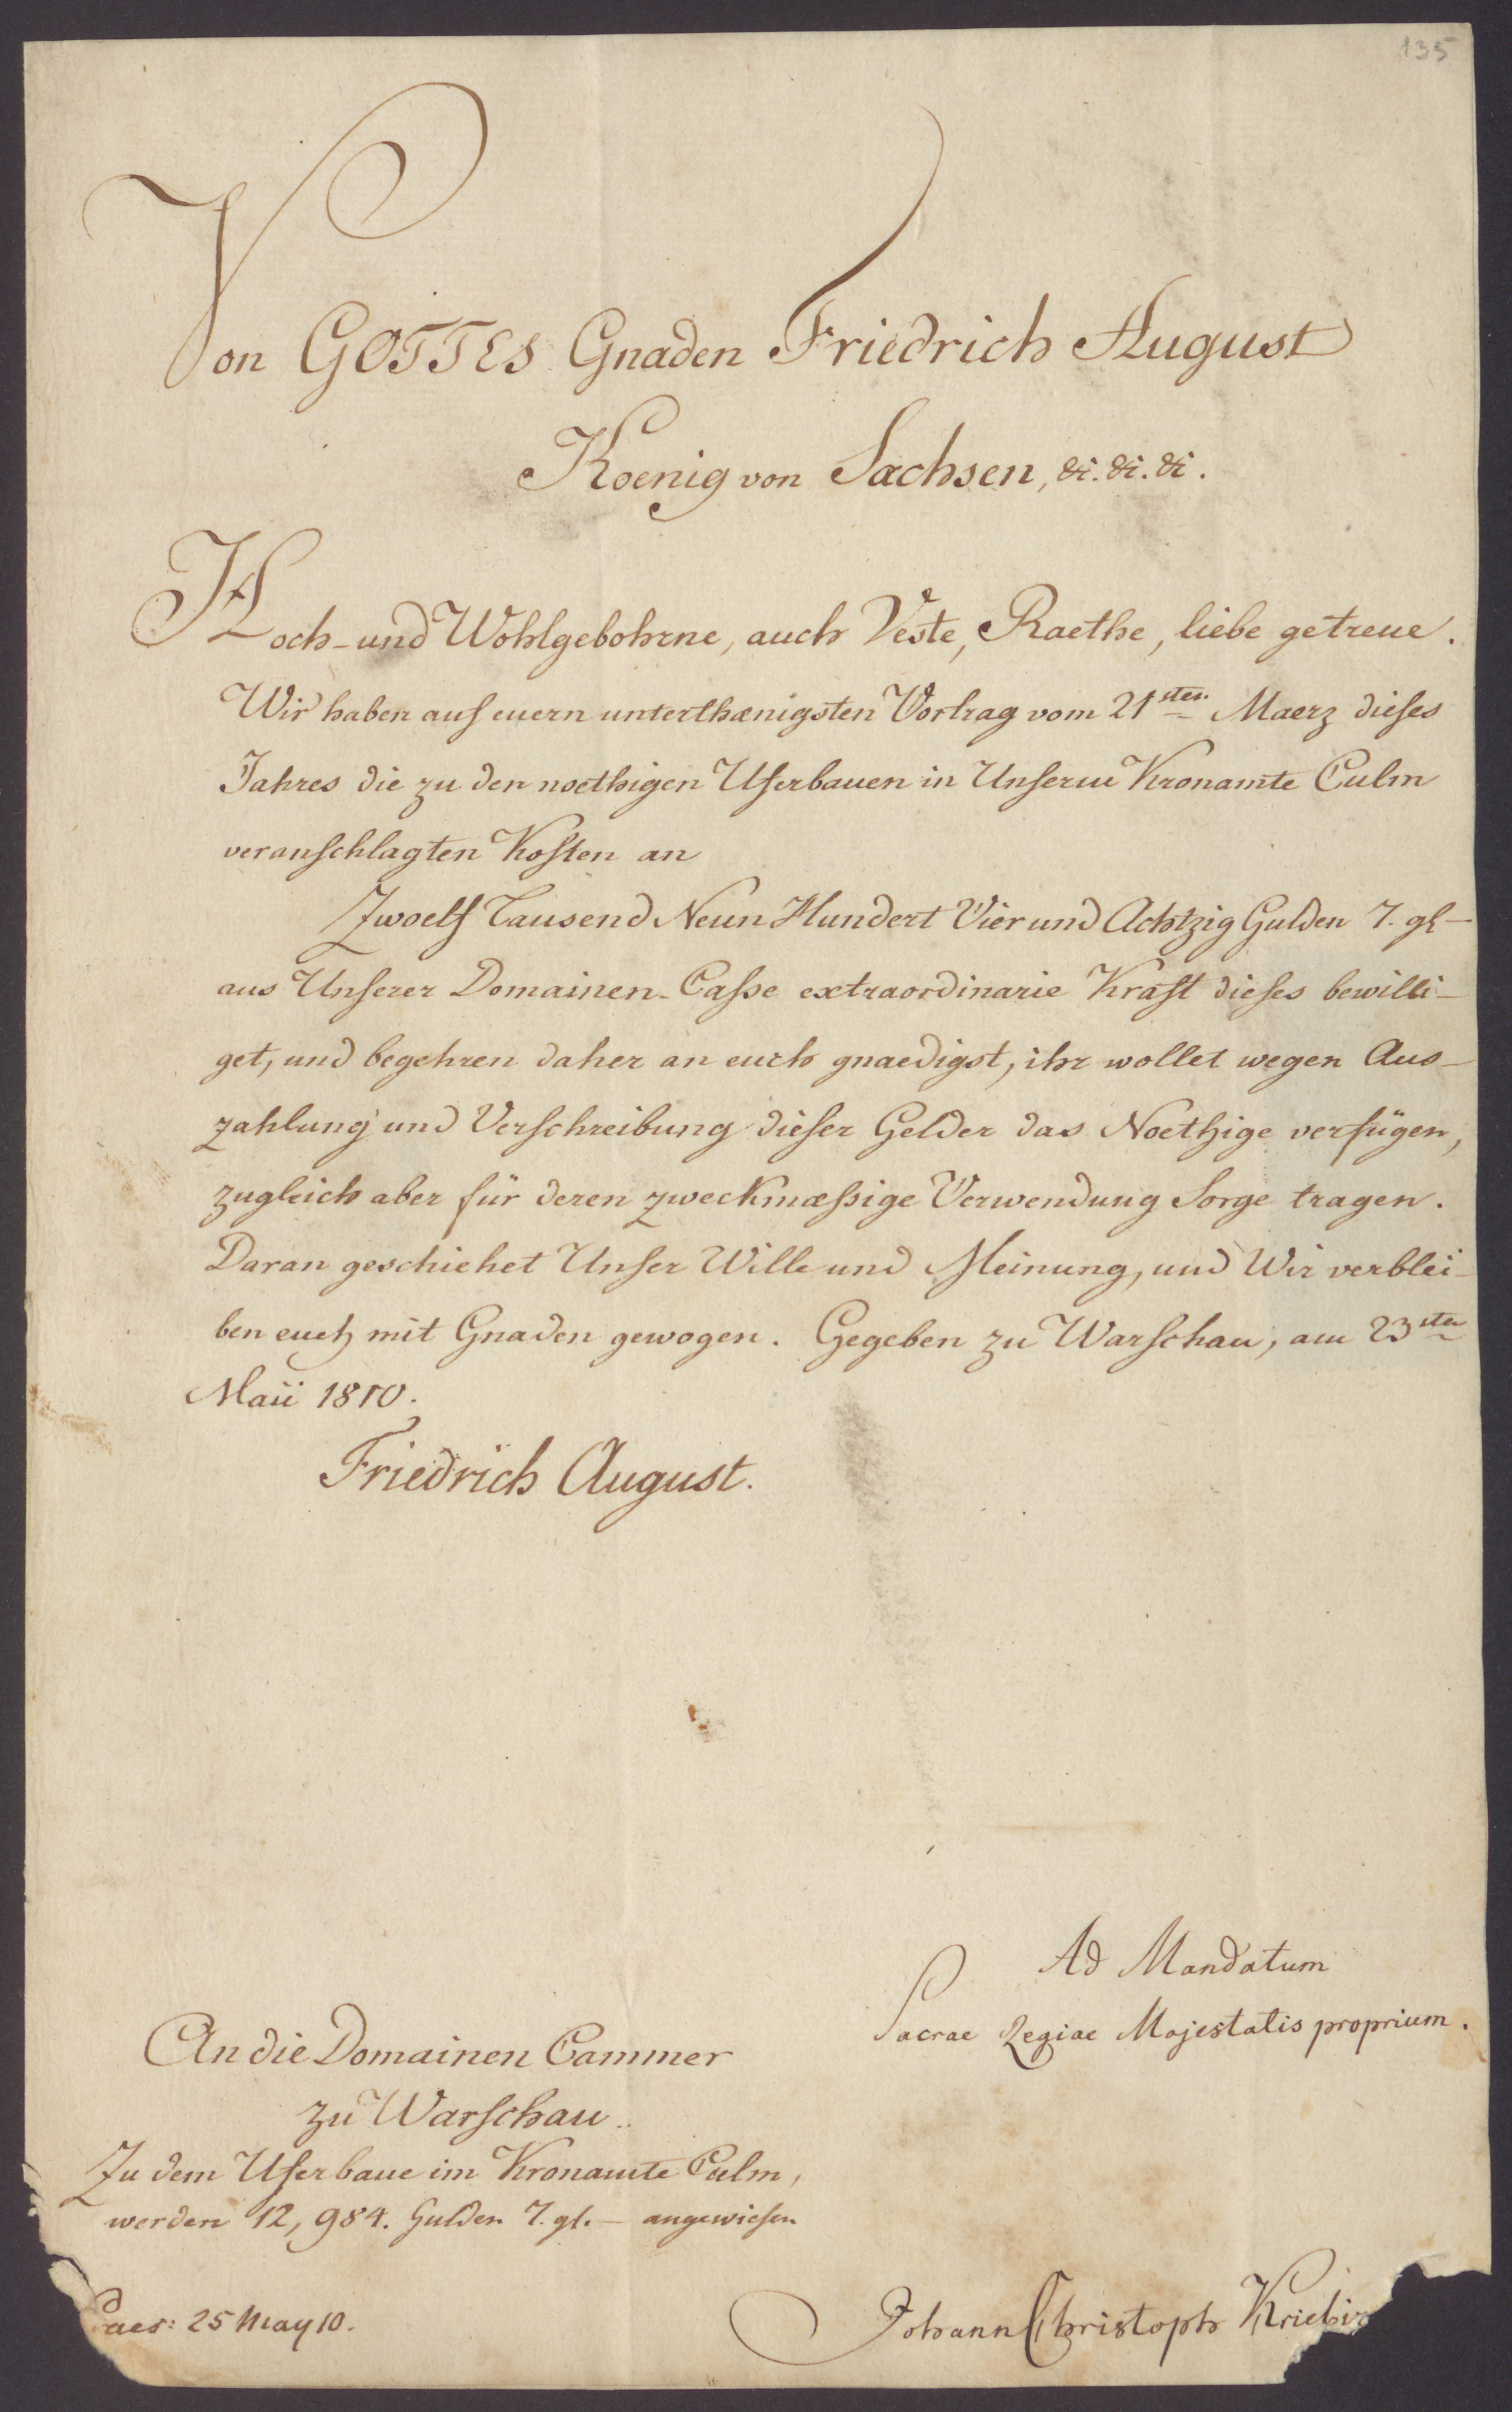 135
Von GOTTES Gnaden Friedrich August
Koenig von Sachsen, &. &. &.
Hoch- und Wohlgebohrne, auch Veste, Raethe, liebe getreue.
Wir haben auf euern unterthænigsten Vortrag vom 21sten Maerz dieses
Jahres die zu den noethigen Uferbauen in Unserm Kronamte Culm
veranschlagten Kosten an
Zwoelf Tausend Neun Hundert Vier und Achtzig Gulden 7. gl -
aus Unserer Domainen-Casse extraordinarie Kraft dieses bewilli-
get, und begehren daher an euch gnaedigst, ihr wollet wegen Aus-
zahlung und Verschreibung dieser Gelder das Noethige verfügen,
zugleich aber für deren zweckmæßige Verwendung Sorge tragen.
Daran geschiehet Unser Wille und Meinung, und Wir verblei-
ben euch mit Gnaden gewogen. Gegeben zu Warschau, am 23sten
Maii 1810.
Friedrich August.
Ad Mandatum
Sacrae Regiae Majestatis proprium.
An die Domainen Cammer
zu Warschau.
Zu dem Uferbaue im Kronamte Culm,
werden 12,984. Gulden 7. gl. - angewiesen
Praes: 25 May 10.
Johann Christoph